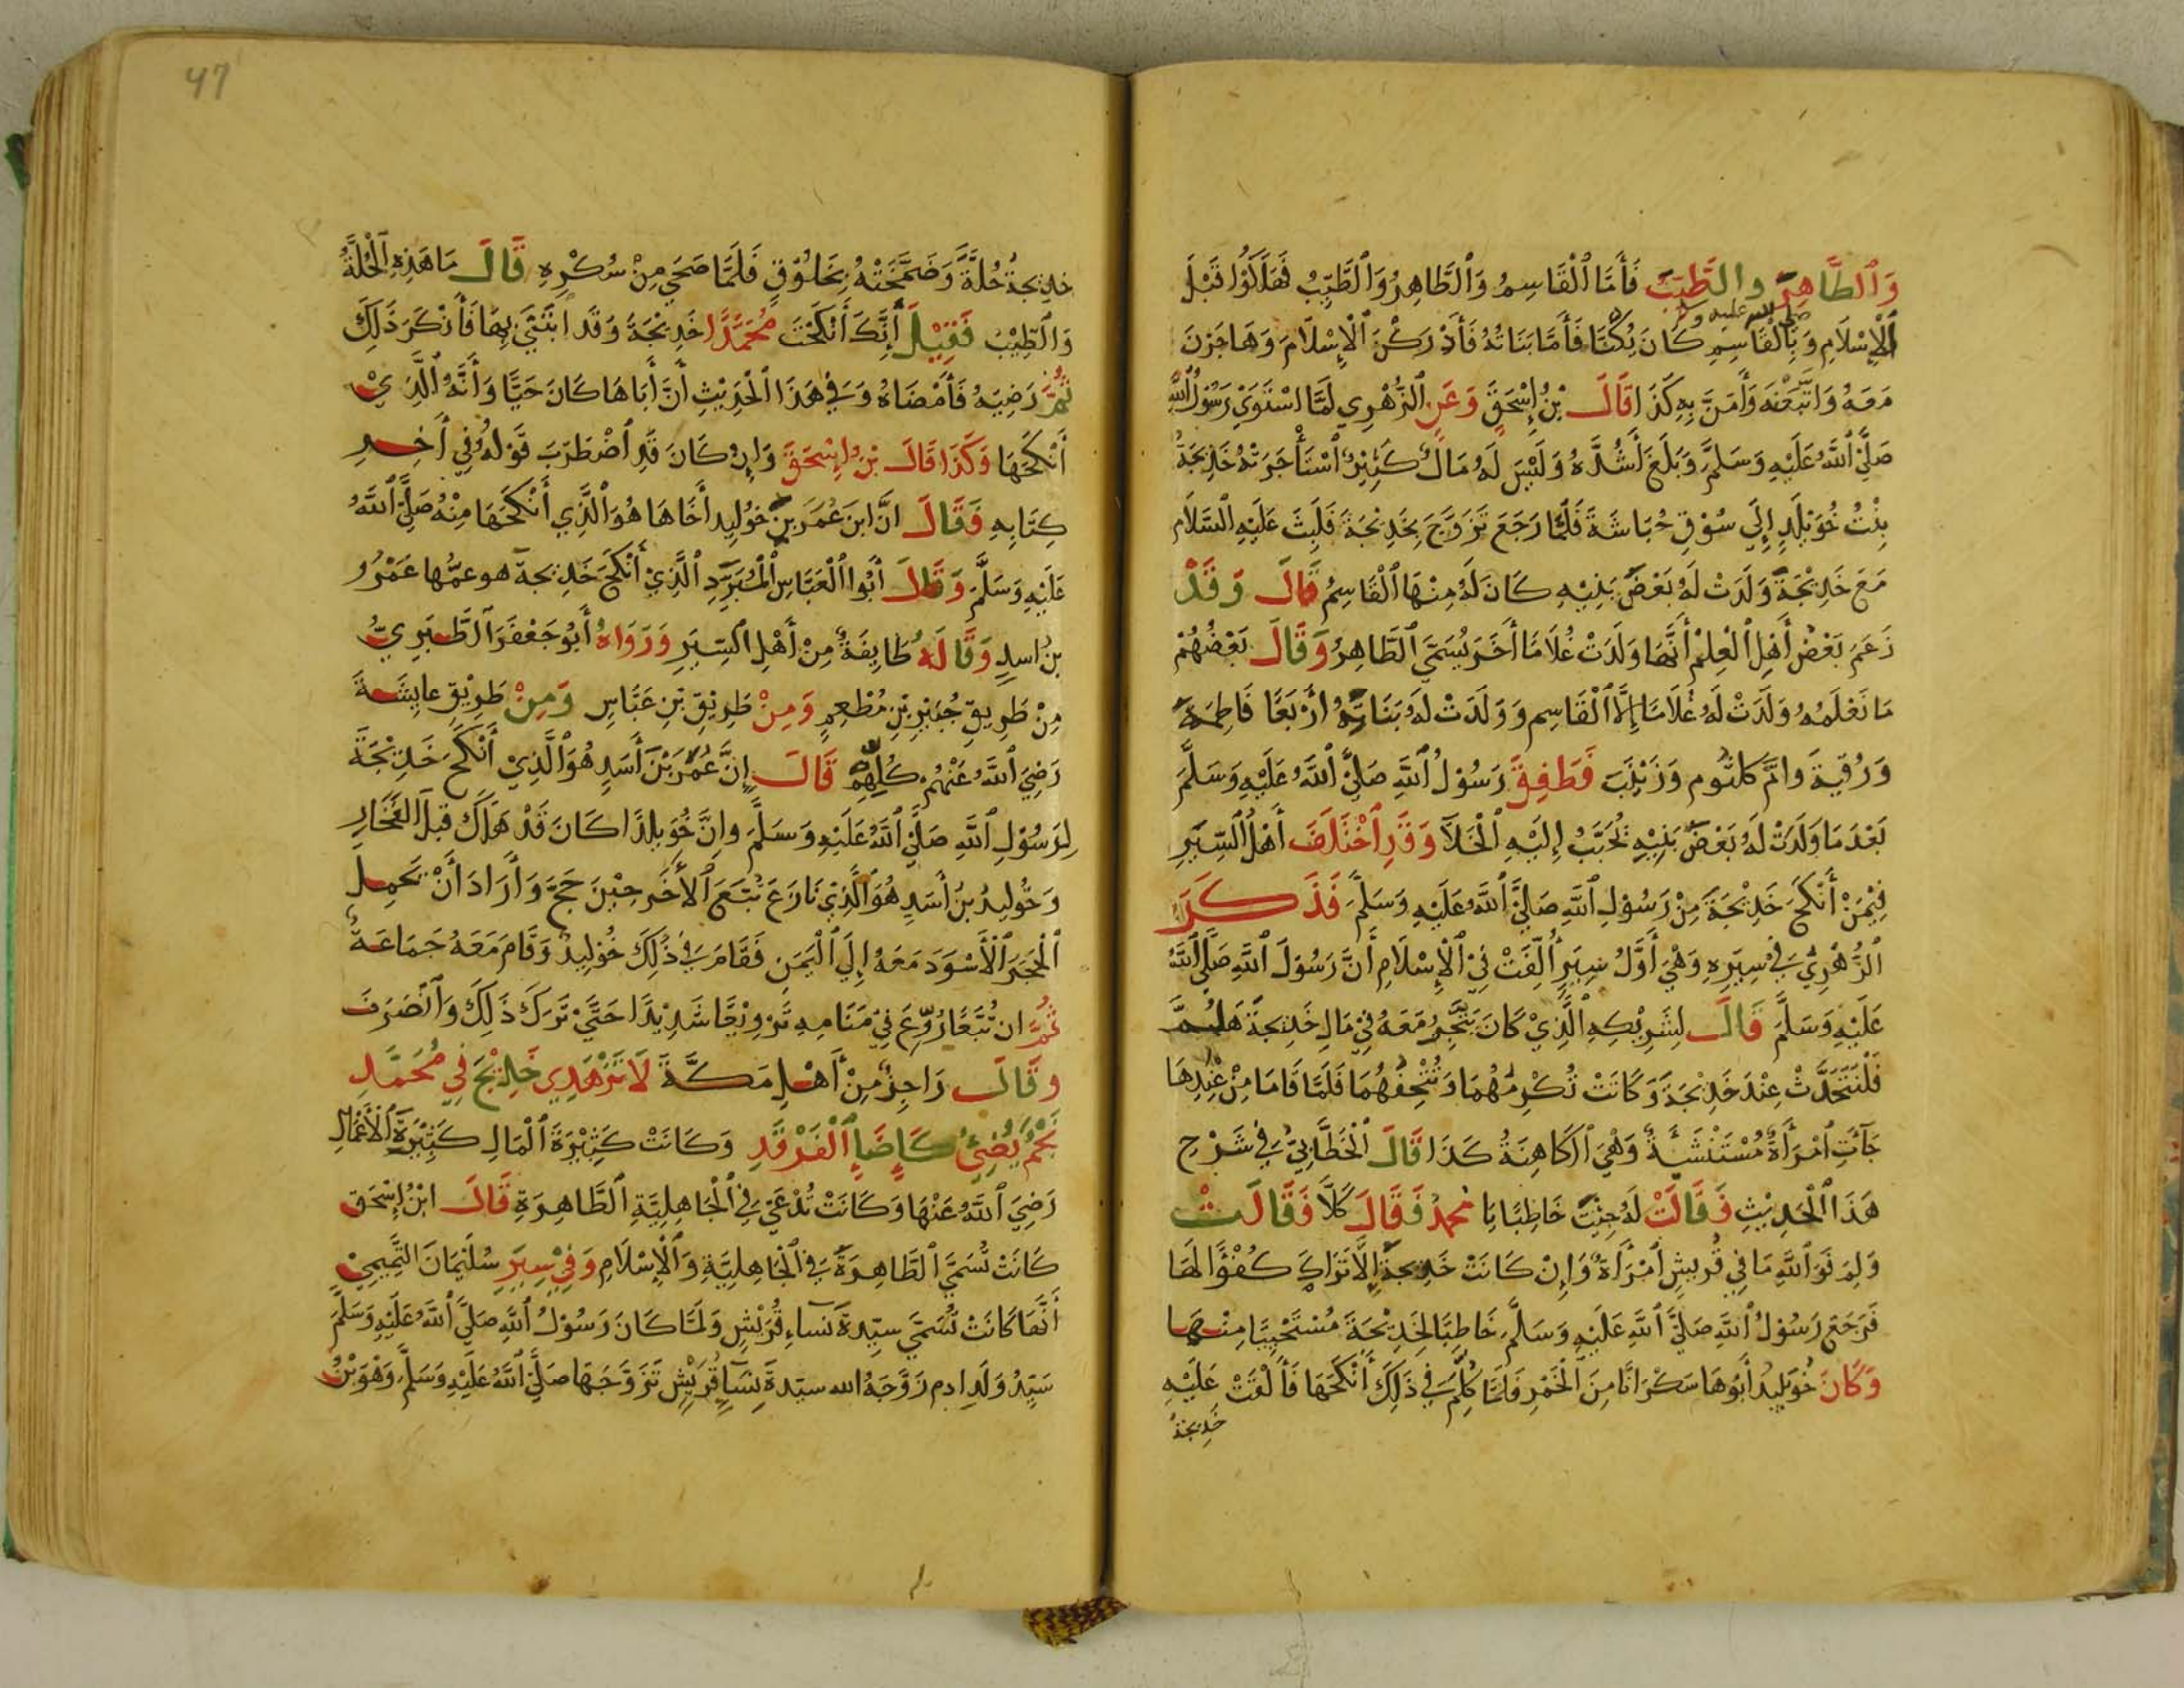 وَالطَّاهِرَ والطَّيِّبَ فَأَمَّا الْقَاسِمُ وَالطَّاهِرُ وَالطَّيِّبُ فَهَلَكُوا قَبْلَ
صلى الله عليه وسلم
الْإِسْلَامِ وَبِالْقَاسِمِ كَانَ يُكَنَّا فَأَمَّا بَنَاتُهُ فَأَدْرَكْنَ الْإِسْلَامَ وَهَاجَرْنَ
مَعَهُ وَاتَّبَعْنَهُ وَأَمَنَّ بِهِ كَذَا قَالَ بْنُ إِسْحَقَ وَعَنِ الزُّهْرِي لَمَّا اسْتَوَى رَسُولُ اللَّهِ
صَلَّى اللَّهُ عَلَيْهِ وَسَلَّمَ وَبَلَغَ أَشُدَّهُ وَلَيْسَ لَهُ مَالٌ كَثِيْرٌ اسْتَأْجَرَتْهُ خَدِيجَةُ
بِنْتُ خُوَيْلِدٍ إِلَى سُوْقِ حُبَاشَةَ فَلَمَّا رَجَعَ تَزَوَّجَ بِخَدِيْجَةَ فَلَبِثَ عَلَيْهِ السَّلَام
مَعَ خَدِيْجَةَ وَلَدَتْ لَهُ بَعْضَ بَنِيْهِ كَانَ لَهُ مِنْهَا الْقَاسِمُ قَالَ وَقَدْ
زَعَمَ بَعْضُ أَهْلِ الْعِلْمِ أَنَّهَا وَلَدَتْ غُلَامًا أَخَرَ يُسَمَّى الطَّاهِرُ وَقَالَ بَعْضُهُمْ
مَا نَعْلَمُهُ وَلَدَتْ لَهُ غُلَامًا إِلَّا الْقَاسِم وَوَلَدَتْ لَهُ بَنَاتِهُ أَرْبَعًا فَاطِمَةَ
وَرُقَيَّةَ وامَّ كلثوم وَزَيْنَبَ فَطَفِقَ رَسُوْلُ اللَّهِ صَلَّى اللَّهُ عَلَيْهِ وَسَلَّمَ
بَعْدَ مَا وَلَدَتْ لَهُ بَعْضَ بَنِيْهِ تُحَبَّبُ إِلَيْهِ الْخَلَا وَقَدِ اخْتَلَفَ أَهْلُ السِّيَرِ
فِيْمَنْ أَنْكَحَ خَدِيْجَةَ مِنْ رَسُوْلِ اللَّهِ صَلَّى اللَّهُ عَلَيْهِ وَسَلَّمَ فَذَكَرَ
الزُّهْرِيُّ فِي سِيَرِهِ وَهْيَ أَوَّلُ سِيَرٍ أُلِّفَتْ فِي الْإِسْلَامِ أَنَّ رَسُوْلَ اللَّهِ صَلَّى اللَّهُ
عَلَيْهِ وَسَلَّمَ قَالَ لِشَرِيْكِهِ الَّذِيْ كَانَ يَتَّجِرُ مَعَهُ فِيْ مَالِ خَدِيجَةَ هَلُمَّ
فَلْنَتَحَدَّثْ عِنْدَ خَدِيْجَةَ وَكَانَتْ تُكْرِمُهُمَا وَتُتْحِفُهُمَا فَلَمَّا قَامَا مِنْ عِنْدِهَا
جَآءَتِ امْرَأَةٌ مُسْتَنْشَئَةٌ وَهْيَ الْكَاهِنَةُ كَذَا قَالَ الْخَطَّابِيُّ فِي شَرْحِ
هَذَا الْحَدِيْثِ فَقَالَتْ لَهُ جِئْتَ خَاطِبًا يَا مُحَمَّدُ فَقَالَ كَلَّا فَقَالَتْ
وَلِمَ فَوَاللَّهِ مَا فِي قُرَيشٍ امْرَأَةٌ وَإِنْ كَانَتْ خَدِيجَةَ إِلَّا تَرَاكَ كُفْؤًا لَهَا
فَرَجَعَ رَسُوْلُ اللَّهِ صَلَّى اللَّهِ عَلَيْهِ وَسَلَّمَ خَاطِبًا لِخَدِيْجَةَ مُسْتَحْيِيًا مِنْهَا
وَكَانَ خُوَيْلِدُ أَبُوْهَا سَكْرَانًا مِنَ الْخَمْرِ فَلَمَّا كُلِّمَ فِي ذَلِكَ أَنْكَحَهَا فَأَلْقَتْ عَلَيْهِ
خَدِيجَةُ
47
خَدِيجَةُ حُلَّةً وَضَمَّخَتْهُ بِخَلُوْقٍ فَلَمَّا صَحَى مِنْ سُكْرِهِ قَالَ مَا هَذِهِ الْحُلَّةُ
وَالطِّيْبُ فَقِيْلَ أَنَّكَ أَنْكَحْتَ مُحَمَّدًا خَدِيْجَةَ وَقَد ابْتَنَى بِهَا فَأَنْكَرَ ذَلِكَ
ثُمَّ رَضِيَهُ فَأَمْضَاهُ وَفِي هَذَا الْحَدِيْثِ أَنَّ أَبَاهَا كَانَ حَيًّا وَأَنَّهُ الَّذِيْ
أَنْكَحَهَا وَكَذَا قَالَ بْنُ إِسْحَقَ وَإِنْ كَانَ قَدِ اضْطَرَبَ قَوْلُهُ فِي أَخِرِ
كِتَابِهِ فَقَالَ انَّ ابنَ عُمَرَ بنِ خوْلِيد أَخَاهَا هُوَ الَّذِي أَنْكَحَهَا مِنْهُ صَلَّى اللَّهُ
عَلَيْهِ وَسَلَّمَ وَقَالَ أَبُوا الْعَبَّاسِ الْمُبَرِّدِ الَّذِيْ أَنْكَحَ خَدِيجةَ هو عمُّها عَمْرُو
بنُ اسدٍ وَقَالَهُ طَايِفَةٌ مِنْ أَهْلِ السِّيَرِ وَرَوَاهُ أَبُو جَعْفَرَ الطَّبَرِيُّ
مِنْ طَرِيقِ جُبَيْرِ بْنِ مُطْعِمٍ وَمِنْ طَرِيْقِ بْنِ عَبَّاسٍ وَمِنْ طَرِيْقِ عايِشَةَ
رَضِيَ اللَّهُ عَنْهُمْ كُلِّهِمْ قَالَ إِنَّ عُمَرَ بْنَ أَسَدٍ هُوَ الَّذِيْ أَنْكَحَ خَدِيْجَةَ
لِرَسُوْلِ اللَّهِ صَلَّى اللَّهُ عَلَيْهِ وَسَلَّمَ وانَّ خُوَيلِدًا كَانَ قَدْ هَلَكَ قَبْلَ الْفَجَارِ
وَخُولِيدُ بنُ أَسَدٍ هُوَ الَّذِيْ نَازَعَ تُبَّعَ الأَخَر حِيْنَ حَجَّ وَأَرَادَ أَنْ يَحْمِلَ
الْحَجَرَ الْأَسْوَدَ مَعَهُ إِلَى الْيَمَنِ فَقَامَ فِي ذَلِكَ خُوْلِيدُ وَقَامَ مَعَهُ جَمَاعَةٌ
ثُمَّ ان تُبَّعًا رُوِّعَ فِيْ مَنَامِهِ تَرْوِيْعًا شَدِيْدًا حَتَّى تَرَكَ ذَلِكَ وَانْصَرَفَ
وَقَالَ رَاجِزٌ مِنْ أَهْلِ مَكَّةَ لَا تَزْهَدِي خَدِيْجَ فِي مُحَمَّدِ
نَجْمٌ يُضِئُ كَإِضَاءِ الْفَرْقَدِ وَكَانَتْ كَثِيْرَةَ الْمَالِ كَثِيْرَةَ الْأَعْمَالِ
رَضِيَ اللَّهُ عَنْهَا وَكَانَتْ تُدْعَى فِي الْجَاهِلِيَّةِ الطَّاهِرَةِ قَالَ ابْنُ إِسْحَقَ
كَانَتْ تُسَمَّى الطَّاهِرَةَ فِي الْجَاهِلِيَّةِ وَالْإِسْلَامِ وَفِيْ سِيَرِ سُلَيْمَانَ التَّيْمِيْ
أَنَّهَا كَانَتْ تُسَمَّى سيِّدةَ نسآءِ قُرَيْشٍ وَلَمَّا كَانَ رَسُوْلُ اللَّهِ صَلَّى اللَّهُ عَلَيْهِ وَسَلَّمَ
سَيِّدُ وَلَدِ ادم زَوَّجَهُ الله سيّدةَ نِسَاءِ قُرَيْشٍ تَزَوَّجَهَا صَلَّى اللَّهُ عَلَيْهِ وَسَلَّمَ وَهْوَ بْنُ